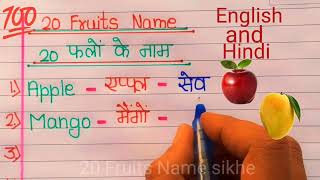 100
20 Fruits Name
English and Hindi
20 फलों के नाम
1) Apple - एप्पल - सेव
2) Mango - मैंगों -
3)
20 Fruits Name sikhe